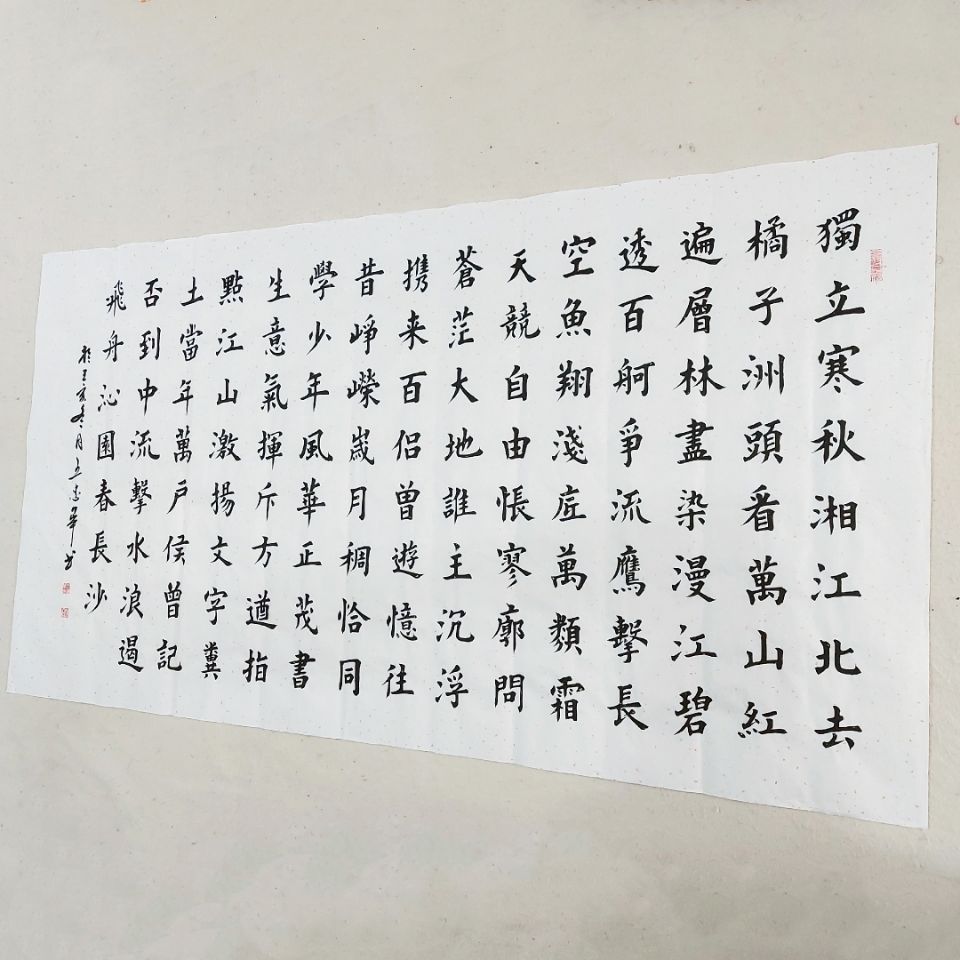 獨立寒秋湘江北去
橘子洲頭看萬山紅
遍層林盡染漫江碧
透百舸爭流鷹擊長
空魚翔淺底萬類霜
天競自由悵寥廓問
蒼茫大地誰主沉浮
携来百侣曾遊憶往
昔崢嶸崴月稠恰同
學少年風華正茂書
生意氣揮斥方遒指
點江山激揚文字糞
土當年萬戶侯曾記
否到中流擊水浪遏
飛舟沁園春長沙